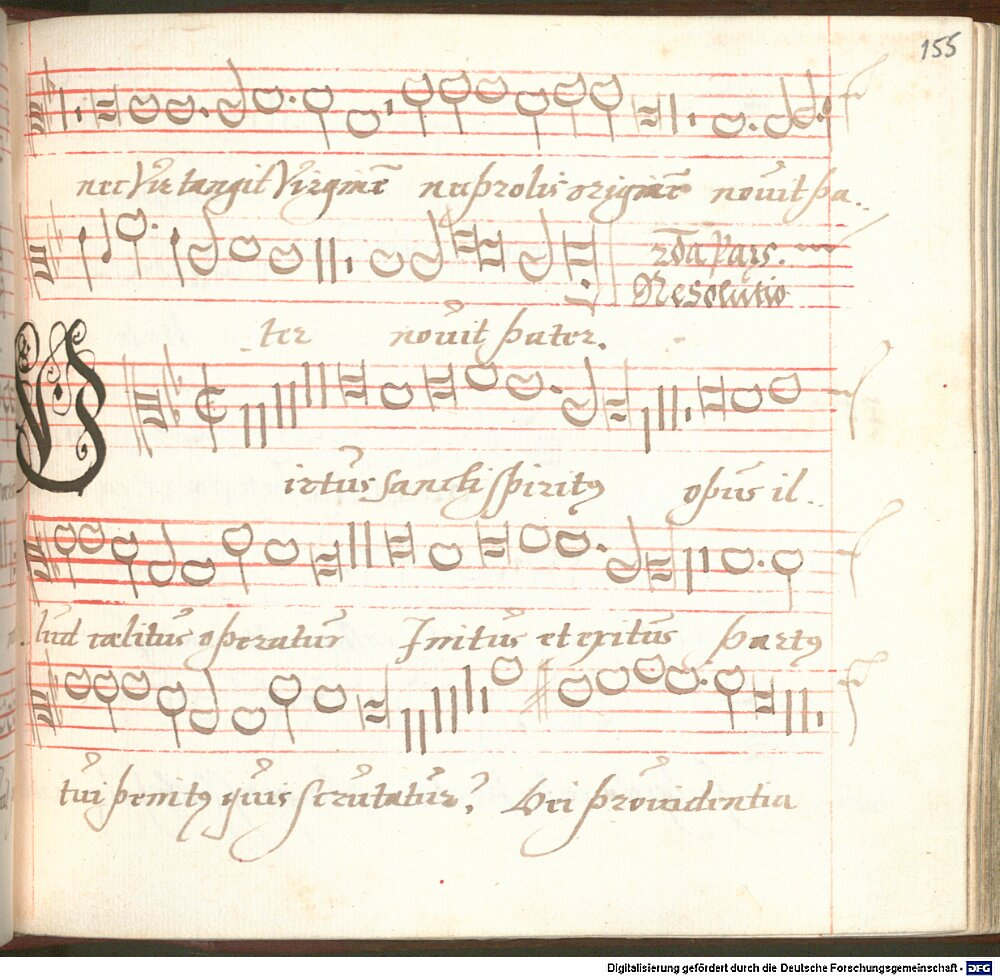 155
nec Vir tangit Virginē nec prolis originē novit pa..
2da Pars.
Resolutio
.ter novit pater.
Virtus sancti spiritus opus il..
.lud cælitus operatur Initus et exitus partus
tui penitus quis scrutatur? Dei providentia
Digitalisierung gefördert durch die Deutsche Forschungsgemeinschaft - DFG